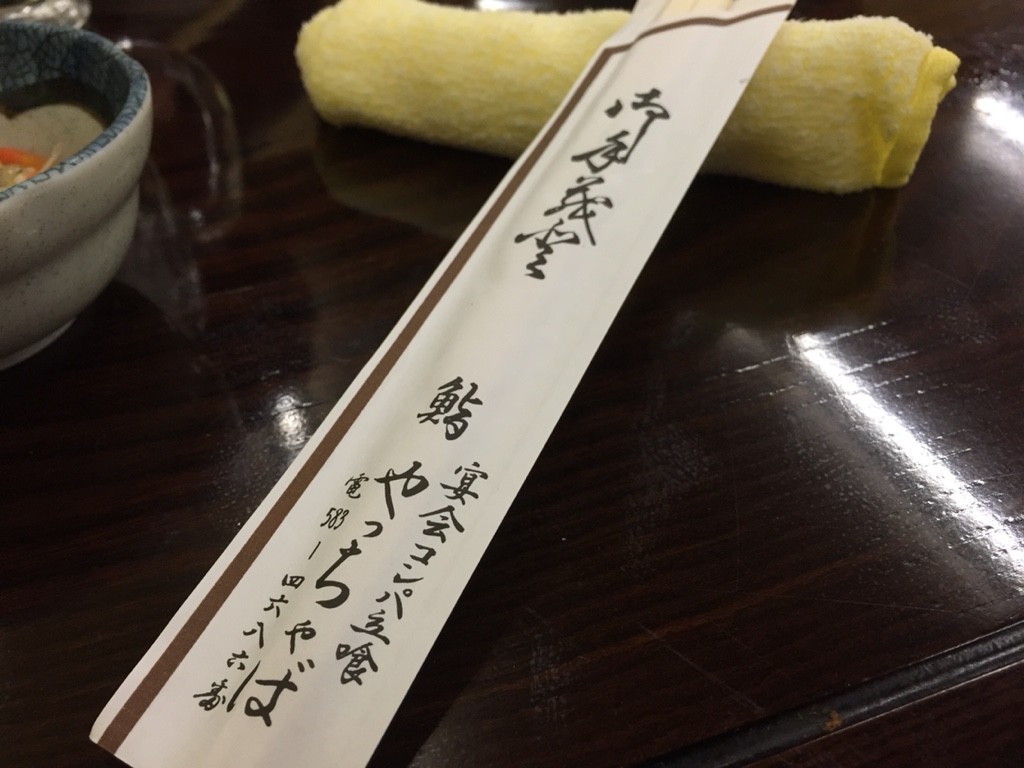 御手茂登
鮨
宴会コンパ立喰
やっちゃば
電583-四六八六番